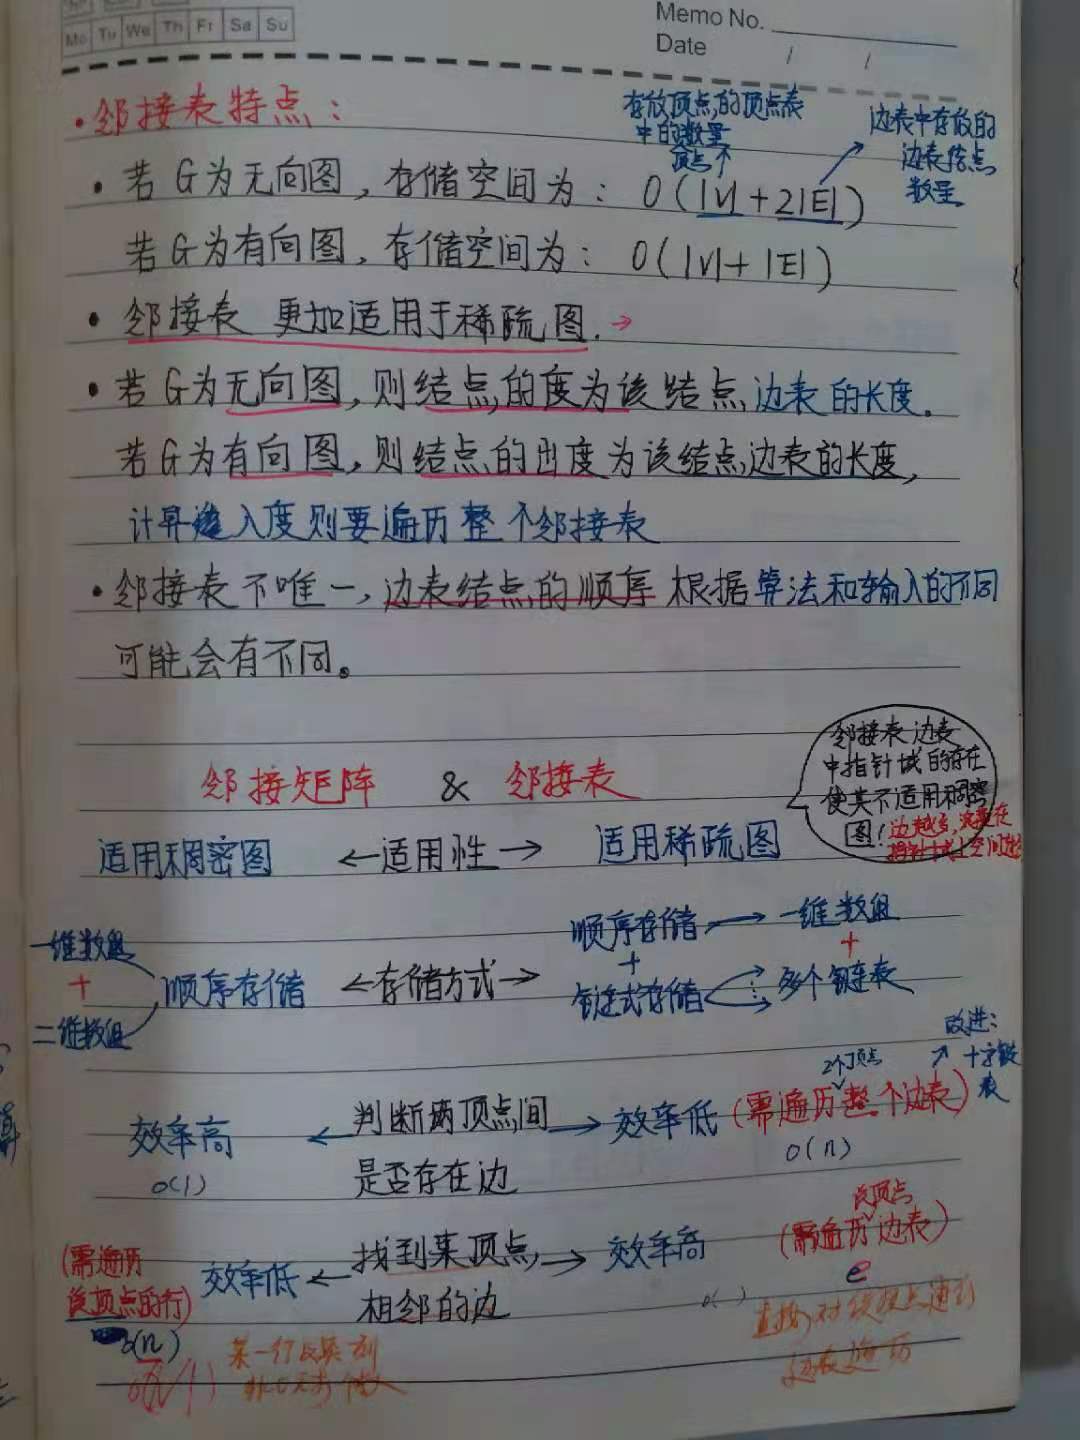 Mo Tu We Th Fr Sa Su
Memo No.
Date / /
·邻接表特点：
存放顶点的顶点表
中的数量
顶点个
边表中存放的
边表结点
数量
·若G为无向图，存储空间为：O(|V|+2|E|)
若G为有向图，存储空间为：O(|V|+|E|)
·邻接表 更加适用于稀疏图.→
·若G为无向图，则结点的度为该结点边表的长度。
若G为有向图，则结点的出度为该结点边表的长度，
计算入度则要遍历整个邻接表
·邻接表不唯一，边表结点的顺序 根据算法和输入的不同
可能会有不同。
邻接表边表
中指针域的存在
使其不适用稠密
图！边越多,
邻接矩阵 & 邻接表
适用稠密图 ←适用性→ 适用稀疏图
一维数组
+
二维数组
顺序存储 ←存储方式→
顺序存储→一维数组
+ +
链式存储 多个链表
改进：
十字链
表
2个顶点
效率高 ←判断两顶点间→ 效率低(需遍历整个边表)
O(1) 是否存在边 O(n)
该顶点
(需遍历
该顶点的行)
O(n)
效率低←找到某顶点→效率高 (需遍历边表)
相邻的边 e
某一行
直接对该顶点
边表遍历